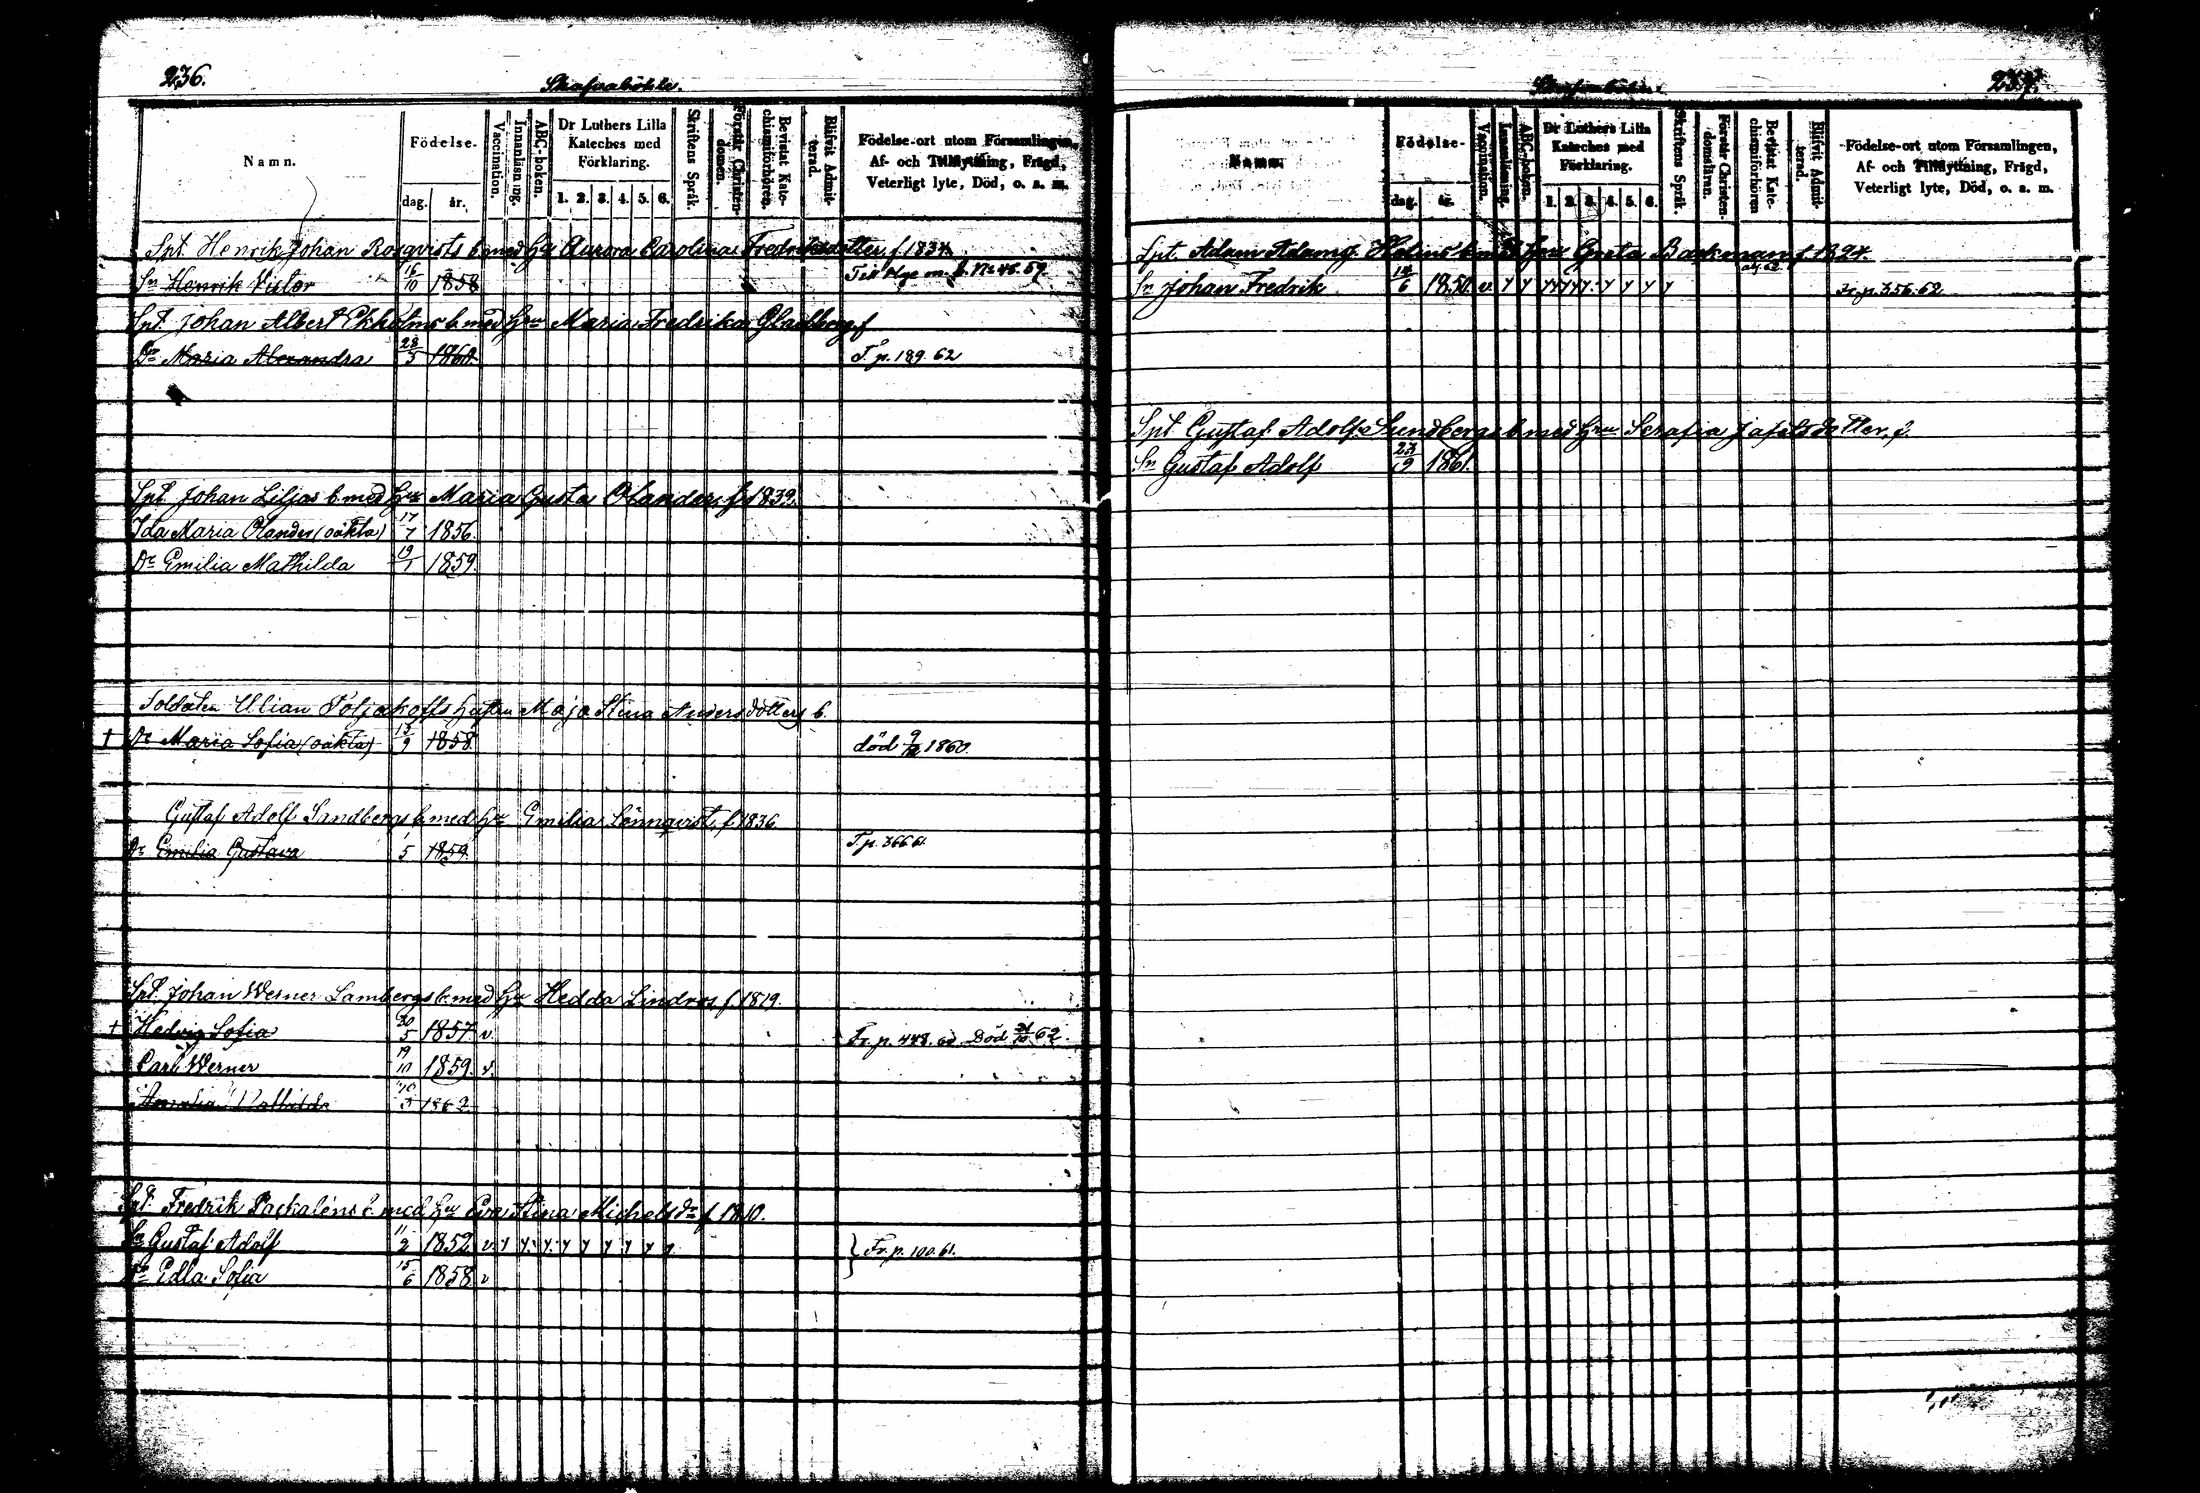 236.
Namn.
Födelse-
dag.
år.
Vaccination.
Innanläsning.
ABC-boken.
Dr Luthers Lilla
Kateches med
Förklaring.
1. 2. 3. 4. 5. 6.
Skriftens Språk.
Förstår Christen-
domen.
Bevistat Kate-
chismiförhören.
Blifvit Admit-
terad.
Födelse-ort utom Församlingen,
Af- och Tillflyttning, Frägd,
Veterligt lyte, Död, o. s. m.
Spt. Henrik Johan Rosqvists b. med Hu Aurora Carolina Fredriksdotter f. 1834.
Sn Henrik Victor 16/10 1858
Spt. Johan Albert Ekholms b. med Hru Maria Fredrika f
Dr Maria Alexandra 28/3 1860. T. p. 189. 62
Spt. Johan Liljas b. med Hru Maria Gusta Olander, f. 1839.
Ida Maria Olander (oäkta) 17/7 1856.
Dr Emilia Mathilda 19/1 1859.
Soldaten Ulian Poljakoffs hustru Maja Stina Andersdotters b.
† Dr Maria Sofia (oäkta) 13/9 1858. död 1860.
Gustaf Adolf Sandbergs b. med Hu Emilia Lönnqvist, f. 1836.
Dr Emilia Gustava 5 1859. T. p. 366 61.
Spt. Johan Werner Lambergs b. med Hu Hedda Lindros, f. 1819.
† Hedvig Sofia 20/5 1857. v. Fr. p. 448. Död 62.
Carl Werner 19/10 1859. v.
Amalia 1862
Spt. Fredrik Paskaléns b. med Hru Eva Stina Michelsdr f. 1810.
Sn Gustaf Adolf 11/2 1852. v. y y. y. y y y y y y } Fr. p. 100. 61.
Dr Edla Sofia 15/6 1858. v
237.
Namn.
Födelse-
dag.
år.
Vaccination.
Innanläsning.
ABC-boken.
Dr Luthers Lilla
Kateches med
Förklaring.
1. 2. 3. 4. 5. 6.
Skriftens Språk.
Förstår Christen-
domsläran.
Bevistat Kate-
chismiförhören
Blifvit Admit-
terad.
Födelse-ort utom Församlingen,
Af- och Tillflyttning, Frägd,
Veterligt lyte, Död, o. s. m.
Spt. Adam Holms b. med Hru Greta Backman f. 1824.
Sn Johan Fredrik 14/6 1850. v. y y y y y y y y y y Fr. p. 356. 62
Spt. Gustaf Adolf Sundbergs b. med Hru Serafia Jafetsdotter, f.
Sn Gustaf Adolf 23/9 1861.